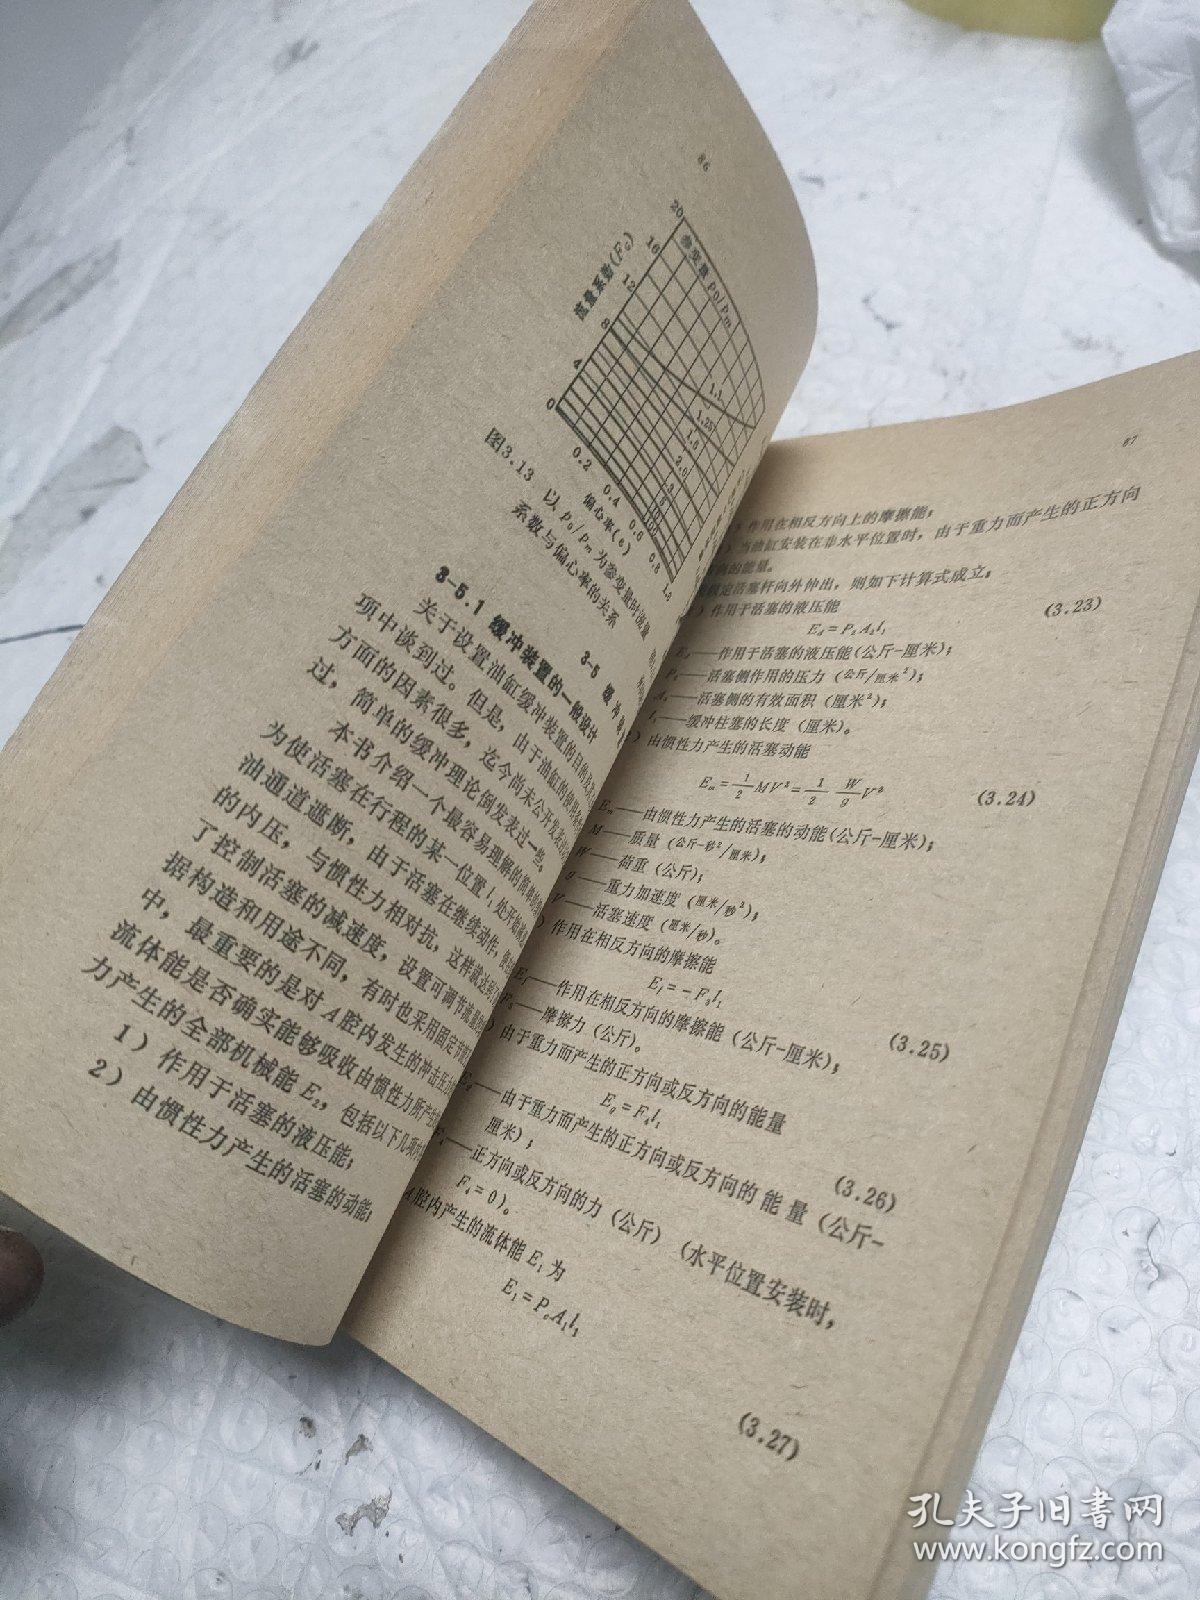 86
流量系数(F_G)
参变量 P₀/Pm
20
16
12
8
4
0
0.2
0.4
0.6
0.8
1.0
1.1
1.25
1.5
2.0
偏心率(e)
图3.13 以 P₀/Pm 为参变量时流量
系数与偏心率的关系
3-5 缓冲
3-5.1 缓冲装置的一般设计
关于设置油缸缓冲装置的目的及
项中谈到过。但是,由于油缸的使用
方面的因素很多,迄今尚未公开发表
过,简单的缓冲理论倒发表过一些。
本书介绍一个最容易理解的简单
为使活塞在行程的某一位置 l₁ 处开始
油通道遮断,由于活塞在继续动作,
的内压,与惯性力相对抗,这样就达到
了控制活塞的减速度,设置可调节流量
据构造和用途不同,有时也采用固定节流
中,最重要的是对 A 腔内发生的冲击压力
流体能是否确实能够吸收由惯性力所产生
力产生的全部机械能 E₂,包括以下几项
1)作用于活塞的液压能;
2)由惯性力产生的活塞的动能;
87
)作用在相反方向上的摩擦能;
)当油缸安装在非水平位置时,由于重力而产生的正方向
方向的能量。
假定活塞杆向外伸出,则如下计算式成立:
)作用于活塞的液压能
E_d=P₁A₂l₁ (3.23)
——作用于活塞的液压能(公斤-厘米);
——活塞侧作用的压力(公斤/厘米²);
——活塞侧的有效面积(厘米²);
——缓冲柱塞的长度(厘米)。
)由惯性力产生的活塞动能
E_m=1/2 MV²=1/2 W/g V² (3.24)
E_m——由惯性力产生的活塞的动能(公斤-厘米);
M——质量(公斤-秒²/厘米);
W——荷重(公斤);
g——重力加速度(厘米/秒²);
V——活塞速度(厘米/秒)。
)作用在相反方向的摩擦能
E_f=-F₃l₁ (3.25)
E_f——作用在相反方向的摩擦能(公斤-厘米);
F₃——摩擦力(公斤)。
)由于重力而产生的正方向或反方向的能量
E_g=F₄l₁ (3.26)
E_g——由于重力而产生的正方向或反方向的能量(公斤-
厘米);
——正方向或反方向的力(公斤)(水平位置安装时,
F₄=0)。
A 腔内产生的流体能 E₁ 为
E₁=P_cA₁l₁ (3.27)
孔夫子旧书网
www.kongfz.com